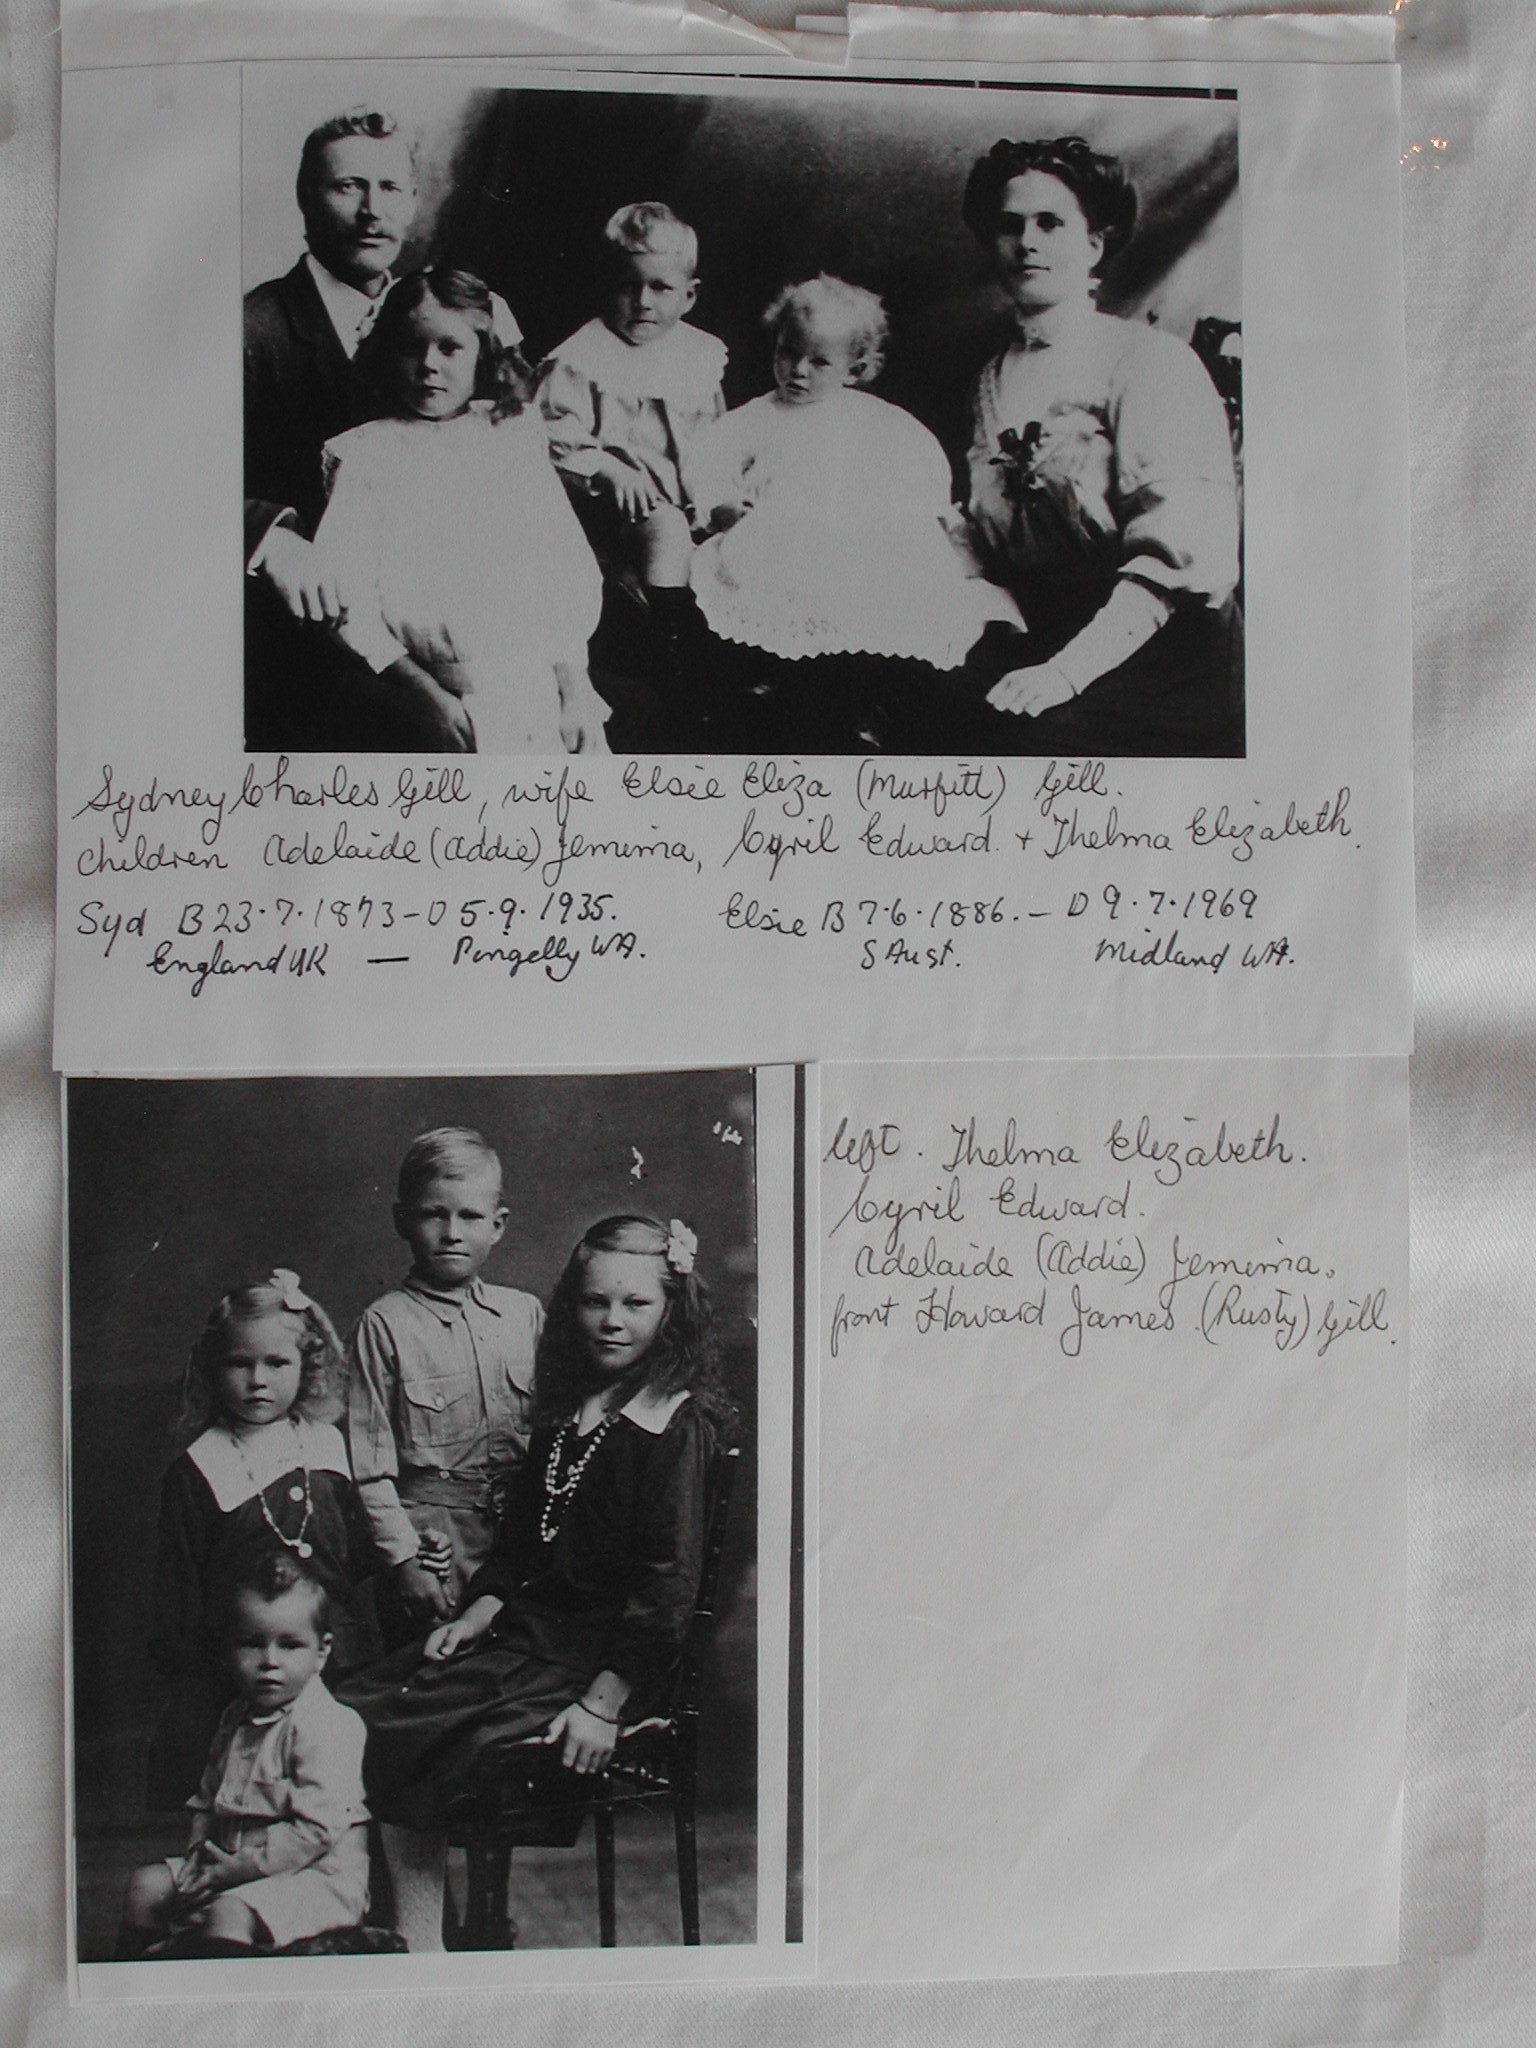 Sydney Charles Gill, wife Elsie Eliza (Murfitt) Gill.
Children Adelaide (Addie) Jemima, Cyril Edward. + Thelma Elizabeth.
Syd B 23.7.1873 – D 5.9.1935. Elsie B 7.6.1886. – D 9.7.1969
England UK — Pingelly WA. S Aust. Midland WA.
left. Thelma Elizabeth.
Cyril Edward.
Adelaide (Addie) Jemima.
front Howard James (Rusty) Gill.